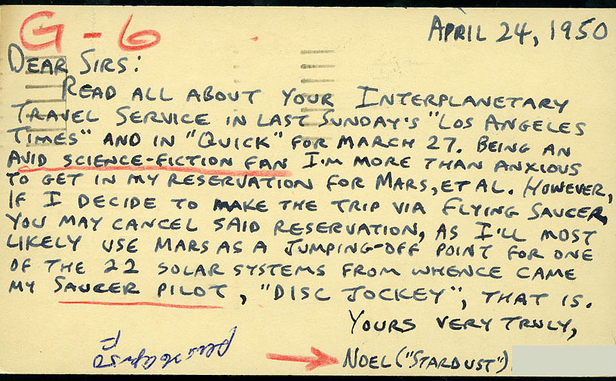 G-6
APRIL 24, 1950
DEAR SIRS:
READ ALL ABOUT YOUR INTERPLANETARY
TRAVEL SERVICE IN LAST SUNDAY'S "LOS ANGELES
TIMES" AND IN "QUICK" FOR MARCH 27. BEING AN
AVID SCIENCE-FICTION FAN I'M MORE THAN ANXIOUS
TO GET IN MY RESERVATION FOR MARS, ET AL. HOWEVER,
IF I DECIDE TO MAKE THE TRIP VIA FLYING SAUCER,
YOU MAY CANCEL SAID RESERVATION, AS I'LL MOST
LIKELY USE MARS AS A JUMPING-OFF POINT FOR ONE
OF THE 22 SOLAR SYSTEMS FROM WHENCE CAME
MY SAUCER PILOT, "DISC JOCKEY", THAT IS.
YOURS VERY TRULY,
NOEL ("STARDUST")